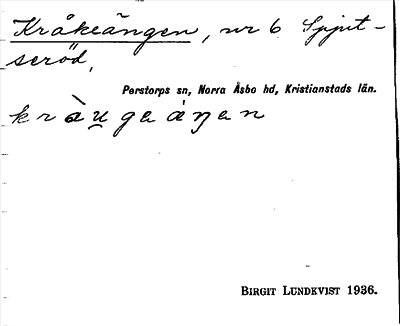 Kråkeängen, nr 6 Spjut-
seröd,
Perstorps sn, Norra Åsbo hd, Kristianstads län.
kràu̯geàŋen
BIRGIT LUNDKVIST 1936.